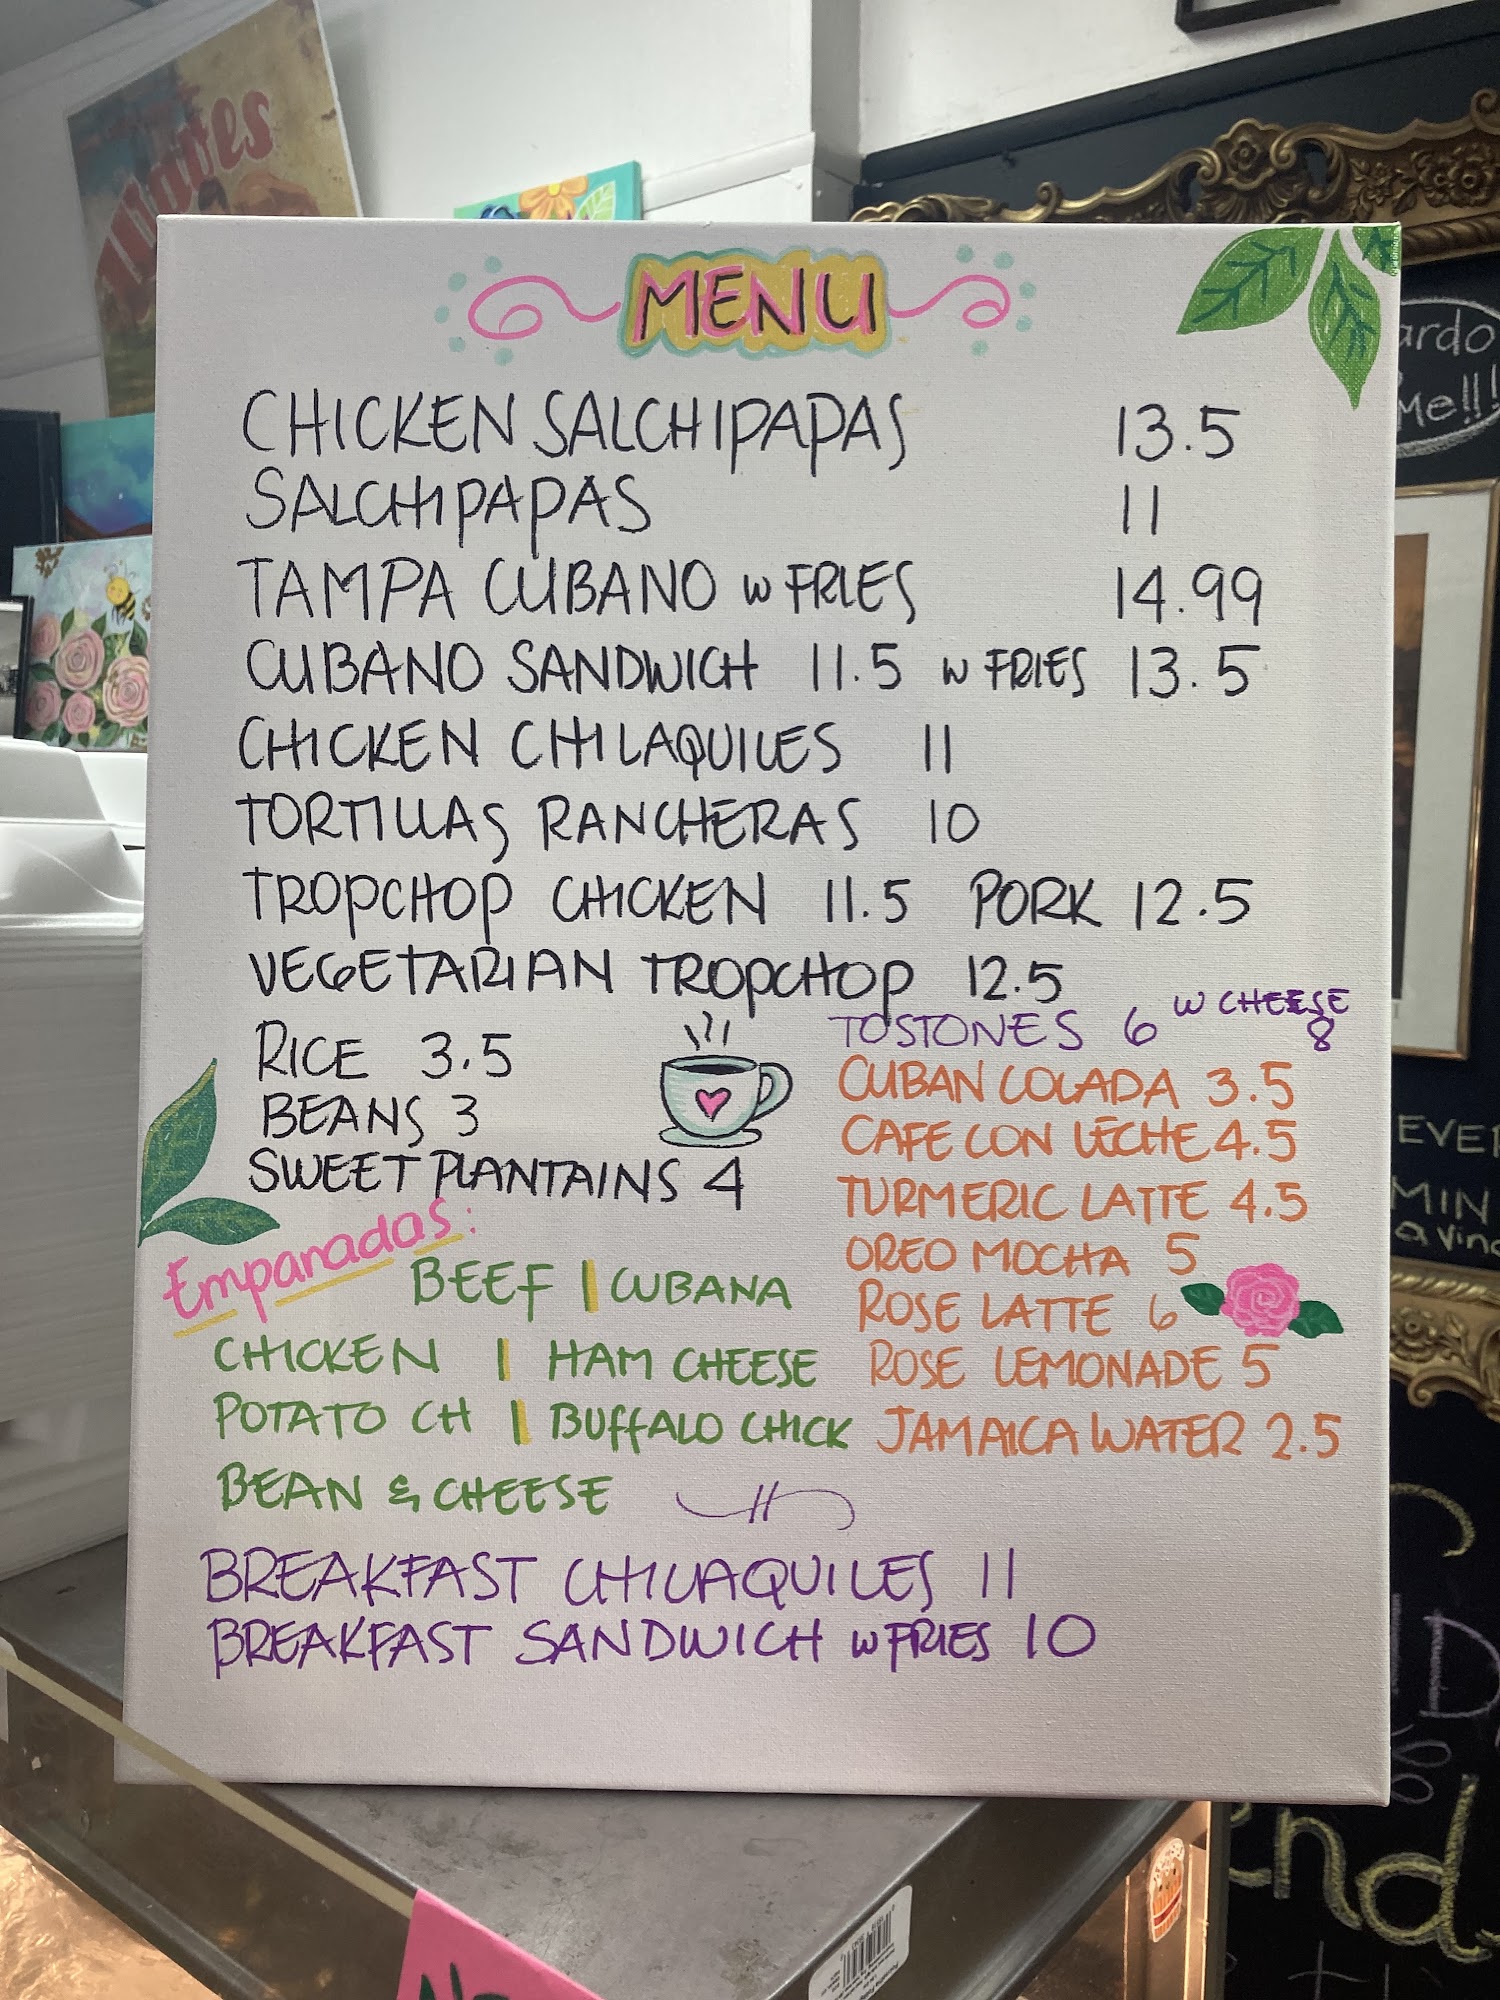 MENU
CHICKEN SALCHIPAPAS 13.5
SALCHIPAPAS 11
TAMPA CUBANO W FRIES 14.99
CUBANO SANDWICH 11.5 W FRIES 13.5
CHICKEN CHILAQUILES 11
TORTILLAS RANCHERAS 10
TROPCHOP CHICKEN 11.5 PORK 12.5
VEGETARIAN TROPCHOP 12.5
RICE 3.5
BEANS 3
SWEET PLANTAINS 4
TOSTONES 6 W CHEESE 8
CUBAN COLADA 3.5
CAFE CON LECHE 4.5
TURMERIC LATTE 4.5
OREO MOCHA 5
ROSE LATTE 6
ROSE LEMONADE 5
JAMAICA WATER 2.5
Empanadas:
BEEF | CUBANA
CHICKEN | HAM CHEESE
POTATO CH | BUFFALO CHICK
BEAN & CHEESE
BREAKFAST CHILAQUILES 11
BREAKFAST SANDWICH W FRIES 10
ardo
Me!!!
EVE
MIN
a vin
end